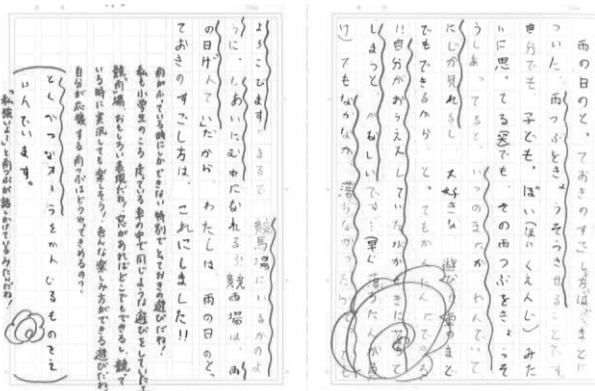 雨の日のと、ておきのすごし方は、まどに
ついた、雨つぶをきょうそうさせることです。
自分でも、子ども、ぽい(保いくえんじ)みた
いに思、てる(笑)でも、その雨つぶをきょうそ
うしあってると、いつのまにか、われていて
にじが見れるし、大好きな遊びが車のまど
でもできるから、と、てもかんたんにできる
!!自分がおうえんしていた方がさきに落ちて
しまうと、かなしいです…早く落ちたんが
け)でもなかなか、落ちなかったら、とても
よろこびます。まるで、競馬場にいるかのよ
うに、しあいにむ中になれる!!競雨場は、雨
の日げんてい!だから、わたしは、雨の日のと、
ておきのすごし方は、これにしました!!
雨がふている時にしかできない特別でとておきの遊びだね!
私も小学生のころ走っている車の中で同じような遊びをしていたよ
競雨場おもしろい表現だね。窓があればどこでもできるし、競で
いる時に実況しても楽しそう!色んな楽しみ方ができる遊びだね。
自分が応援する雨つぶはどうやってきめるの?
とくべつなオーラをかんじるものをえ
らんでいます。
「私強いよー」と雨つぶが話しかけているみたいだね!